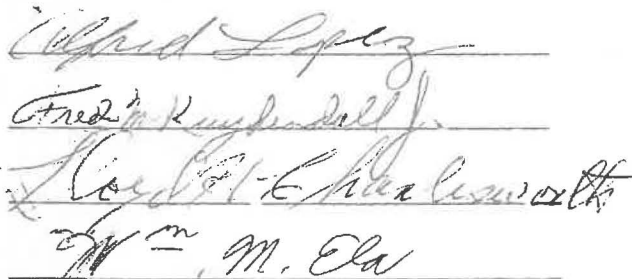 Alfred Lopez
Fred M Kuykendall Jr.
Lloyd H Charlesworth
Wm. M. Ela